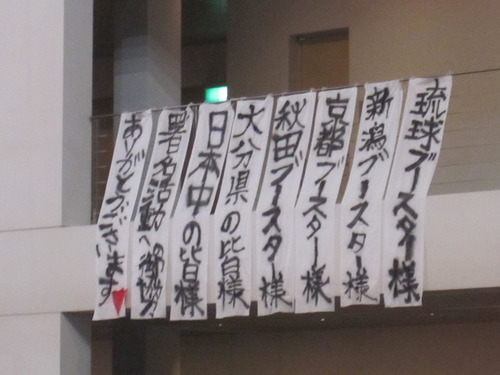 琉球ブースター様
新潟ブースター様
京都ブースター様
秋田ブースター様
大分県の皆様
日本中の皆様
署名活動へ御協力
ありがとうございます